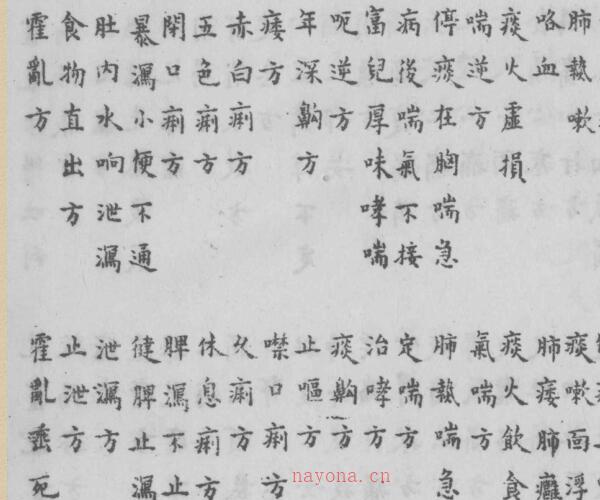 肺熱嗽
咯血
痰火虛損
喘逆方
停痰在胸喘急
病後喘氣不接
富兒厚味哮喘
呃逆方
年深齁方
痿方
赤白痢方
五色痢方
閉口痢方
暴瀉小便不通
肚內水响泄瀉
食物直出方
霍亂方
痰嗽面浮
肺痿肺癰
痰火飲食
氣喘方
肺熱喘急
定喘方
治哮方
痰齁方
止嘔方
噤口痢方
久痢方
休息痢方
脾瀉不止
健脾止瀉
泄瀉方
止泄方
霍亂垂死
nayona.cn